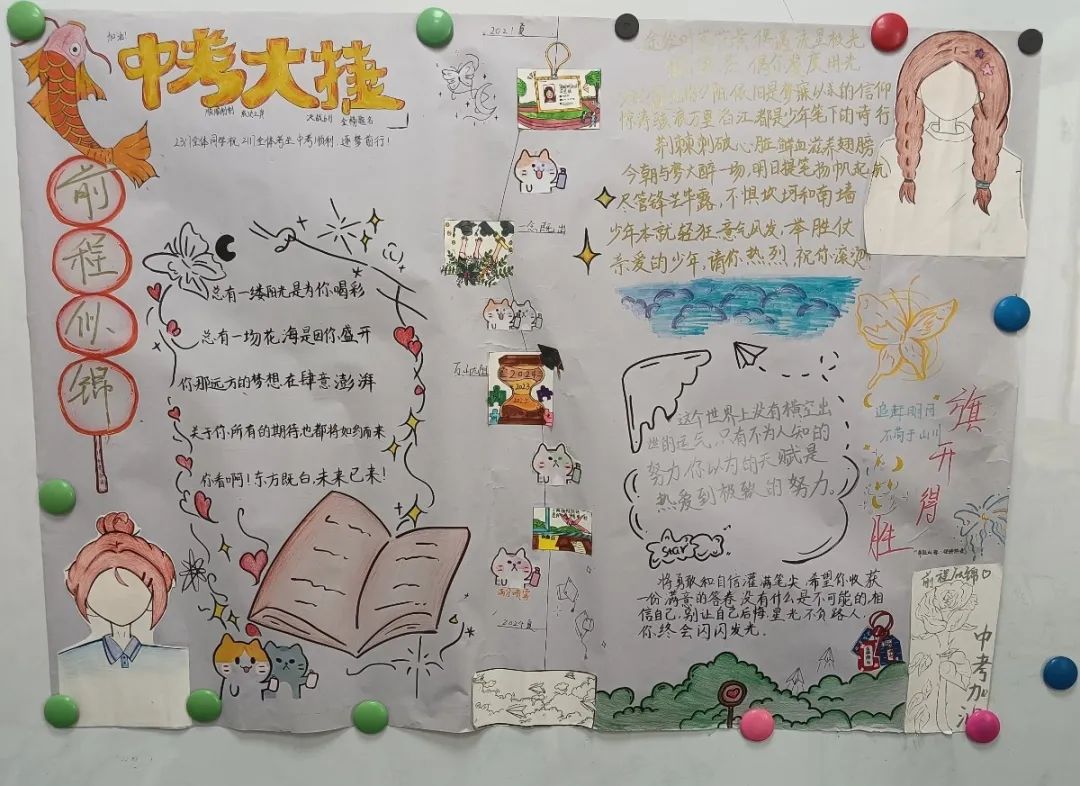 加油!
中考大捷
顺顺利利 决战6月 金榜题名
231全体同学祝211全体考生中考顺利,逐梦前行!
前
程
似
锦
总有一缕阳光是为你喝彩
总有一场花海是因你盛开
你那远方的梦想在肆意澎湃
关于你所有的期待也都将如约而来
你看啊!东方既白,未来已来!
2021夏
2024
2023
2022
2024夏
荆棘刺破心脏鲜血滋养翅膀
今朝与梦大醉一场,明日提笔扬帆起航
尽管锋芒毕露,不惧坎坷和南墙
少年本就轻狂,意气风发,举胜仗
亲爱的少年,请你热烈,祝你滚烫
这个世界上没有横空出
世的运气,只有不为人知的
努力,你以为的天赋是
热爱到极致的努力。
Star
将勇敢和自信灌满笔尖,希望你收获
一份满意的答卷,没有什么是不可能的,相
信自己,别让自己后悔,星光不负路人,
你终会闪闪发光.
追赶明月
不荷于山川
旗
开
得
胜
前程似锦♡
中
考
加
油